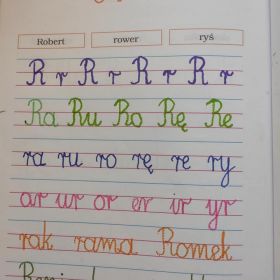 Robert rower ryś
R r R r R r R r
Ra Ru Ro Rę Re
ra ru ro rę re ry
ar ur or er ir yr
rak rama Romek